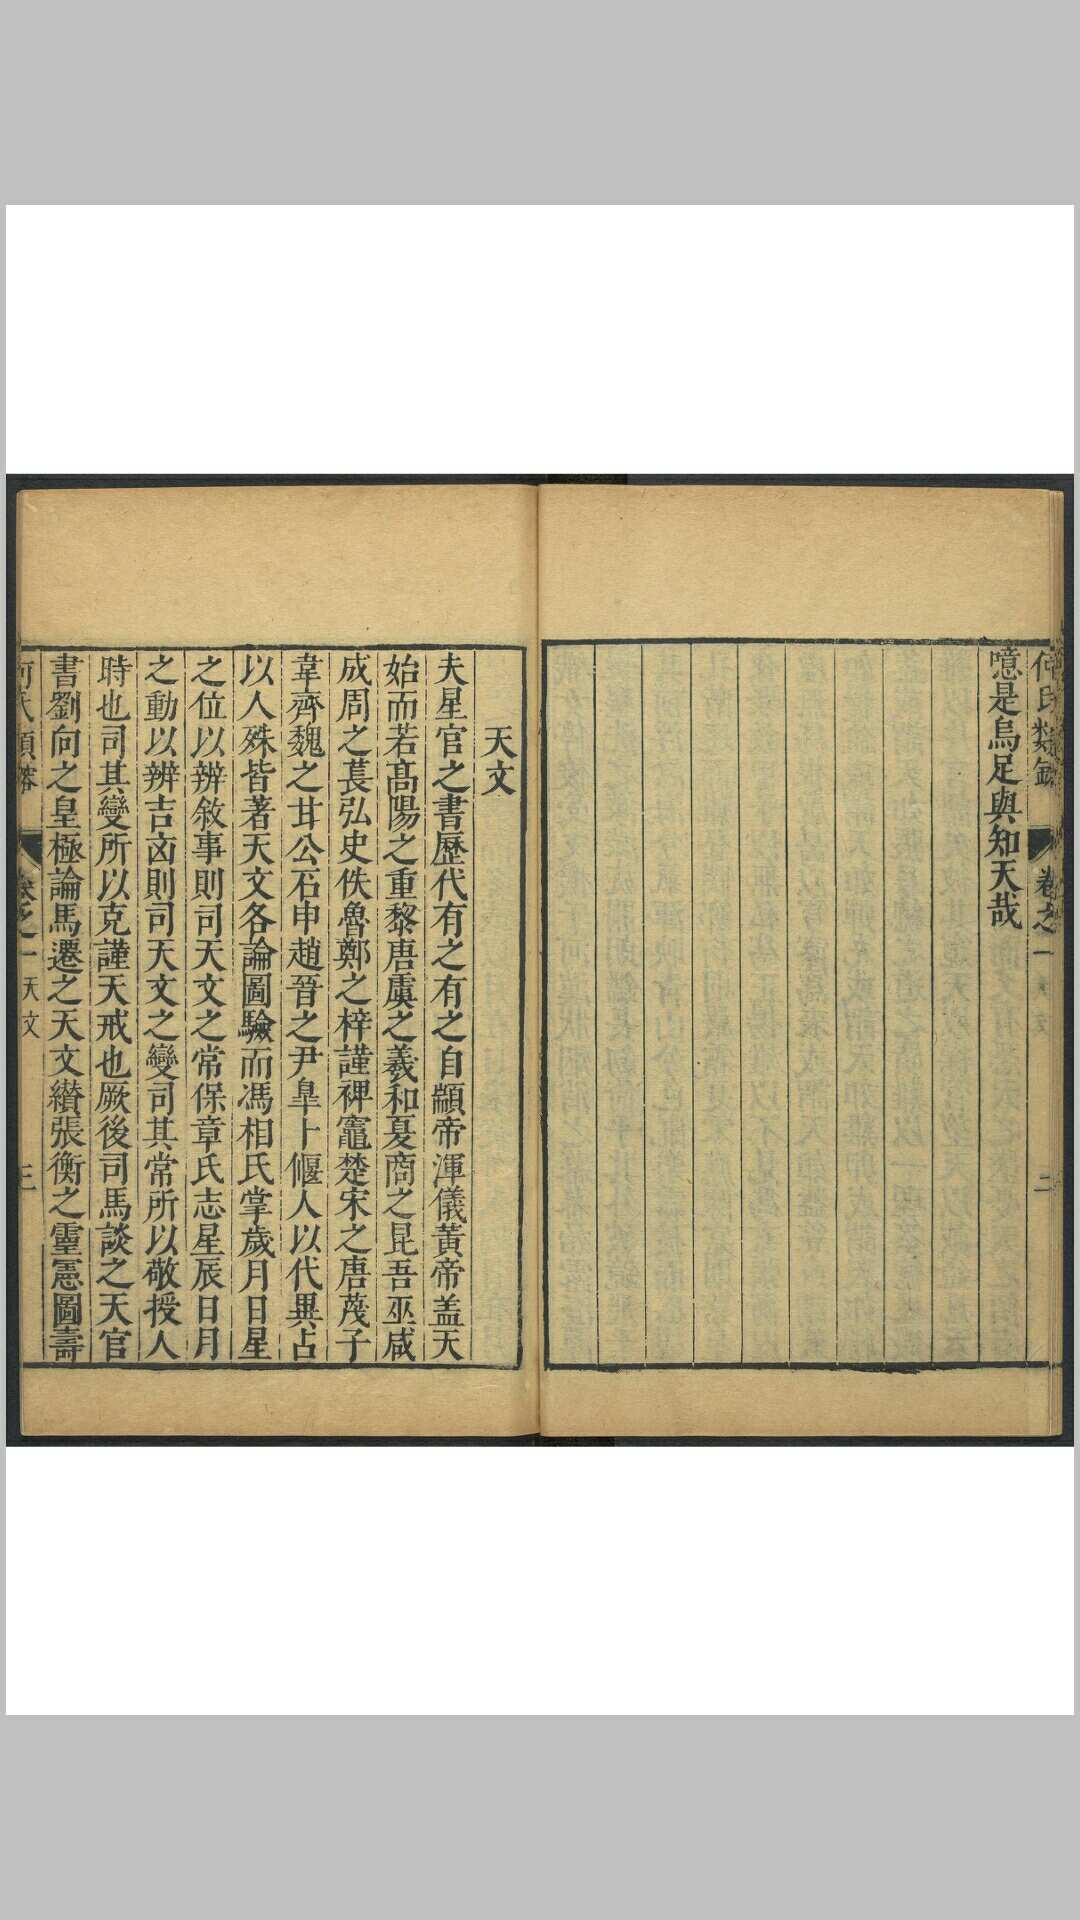 何氏類鎔 卷之一 天文 二
噫是烏足與知天哉
天文
夫星官之書歷代有之有之自顓帝渾儀黃帝盖天
始而若髙陽之重黎唐虞之羲和夏商之昆吾巫咸
成周之萇弘史佚魯鄭之梓謹裨竈楚宋之唐茂子
韋齊魏之甘公石申趙晉之尹皐卜偃人以代異占
以人殊皆著天文各論圖驗而馮相氏掌歲月日星
之位以辨敘事則司天文之常保章氏志星辰日月
之動以辨吉㐫則司天文之變司其常所以敬授人
時也司其變所以克謹天戒也厥後司馬談之天官
書劉向之皇極論馬遷之天文纉張衡之靈憲圖壽
何氏類鎔 卷之一 天文 三